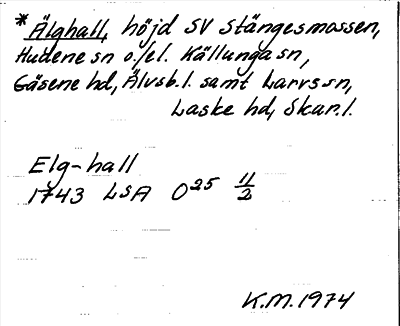 *Älghall, höjd SV Stängesmossen,
Hudene sn o./el. Källunga sn,
Gäsene hd, Älvsb.l. samt Larvs sn,
Laske hd, Skar.l.
Elg-hall
1743 LSA O25 11/2
K.M. 1974